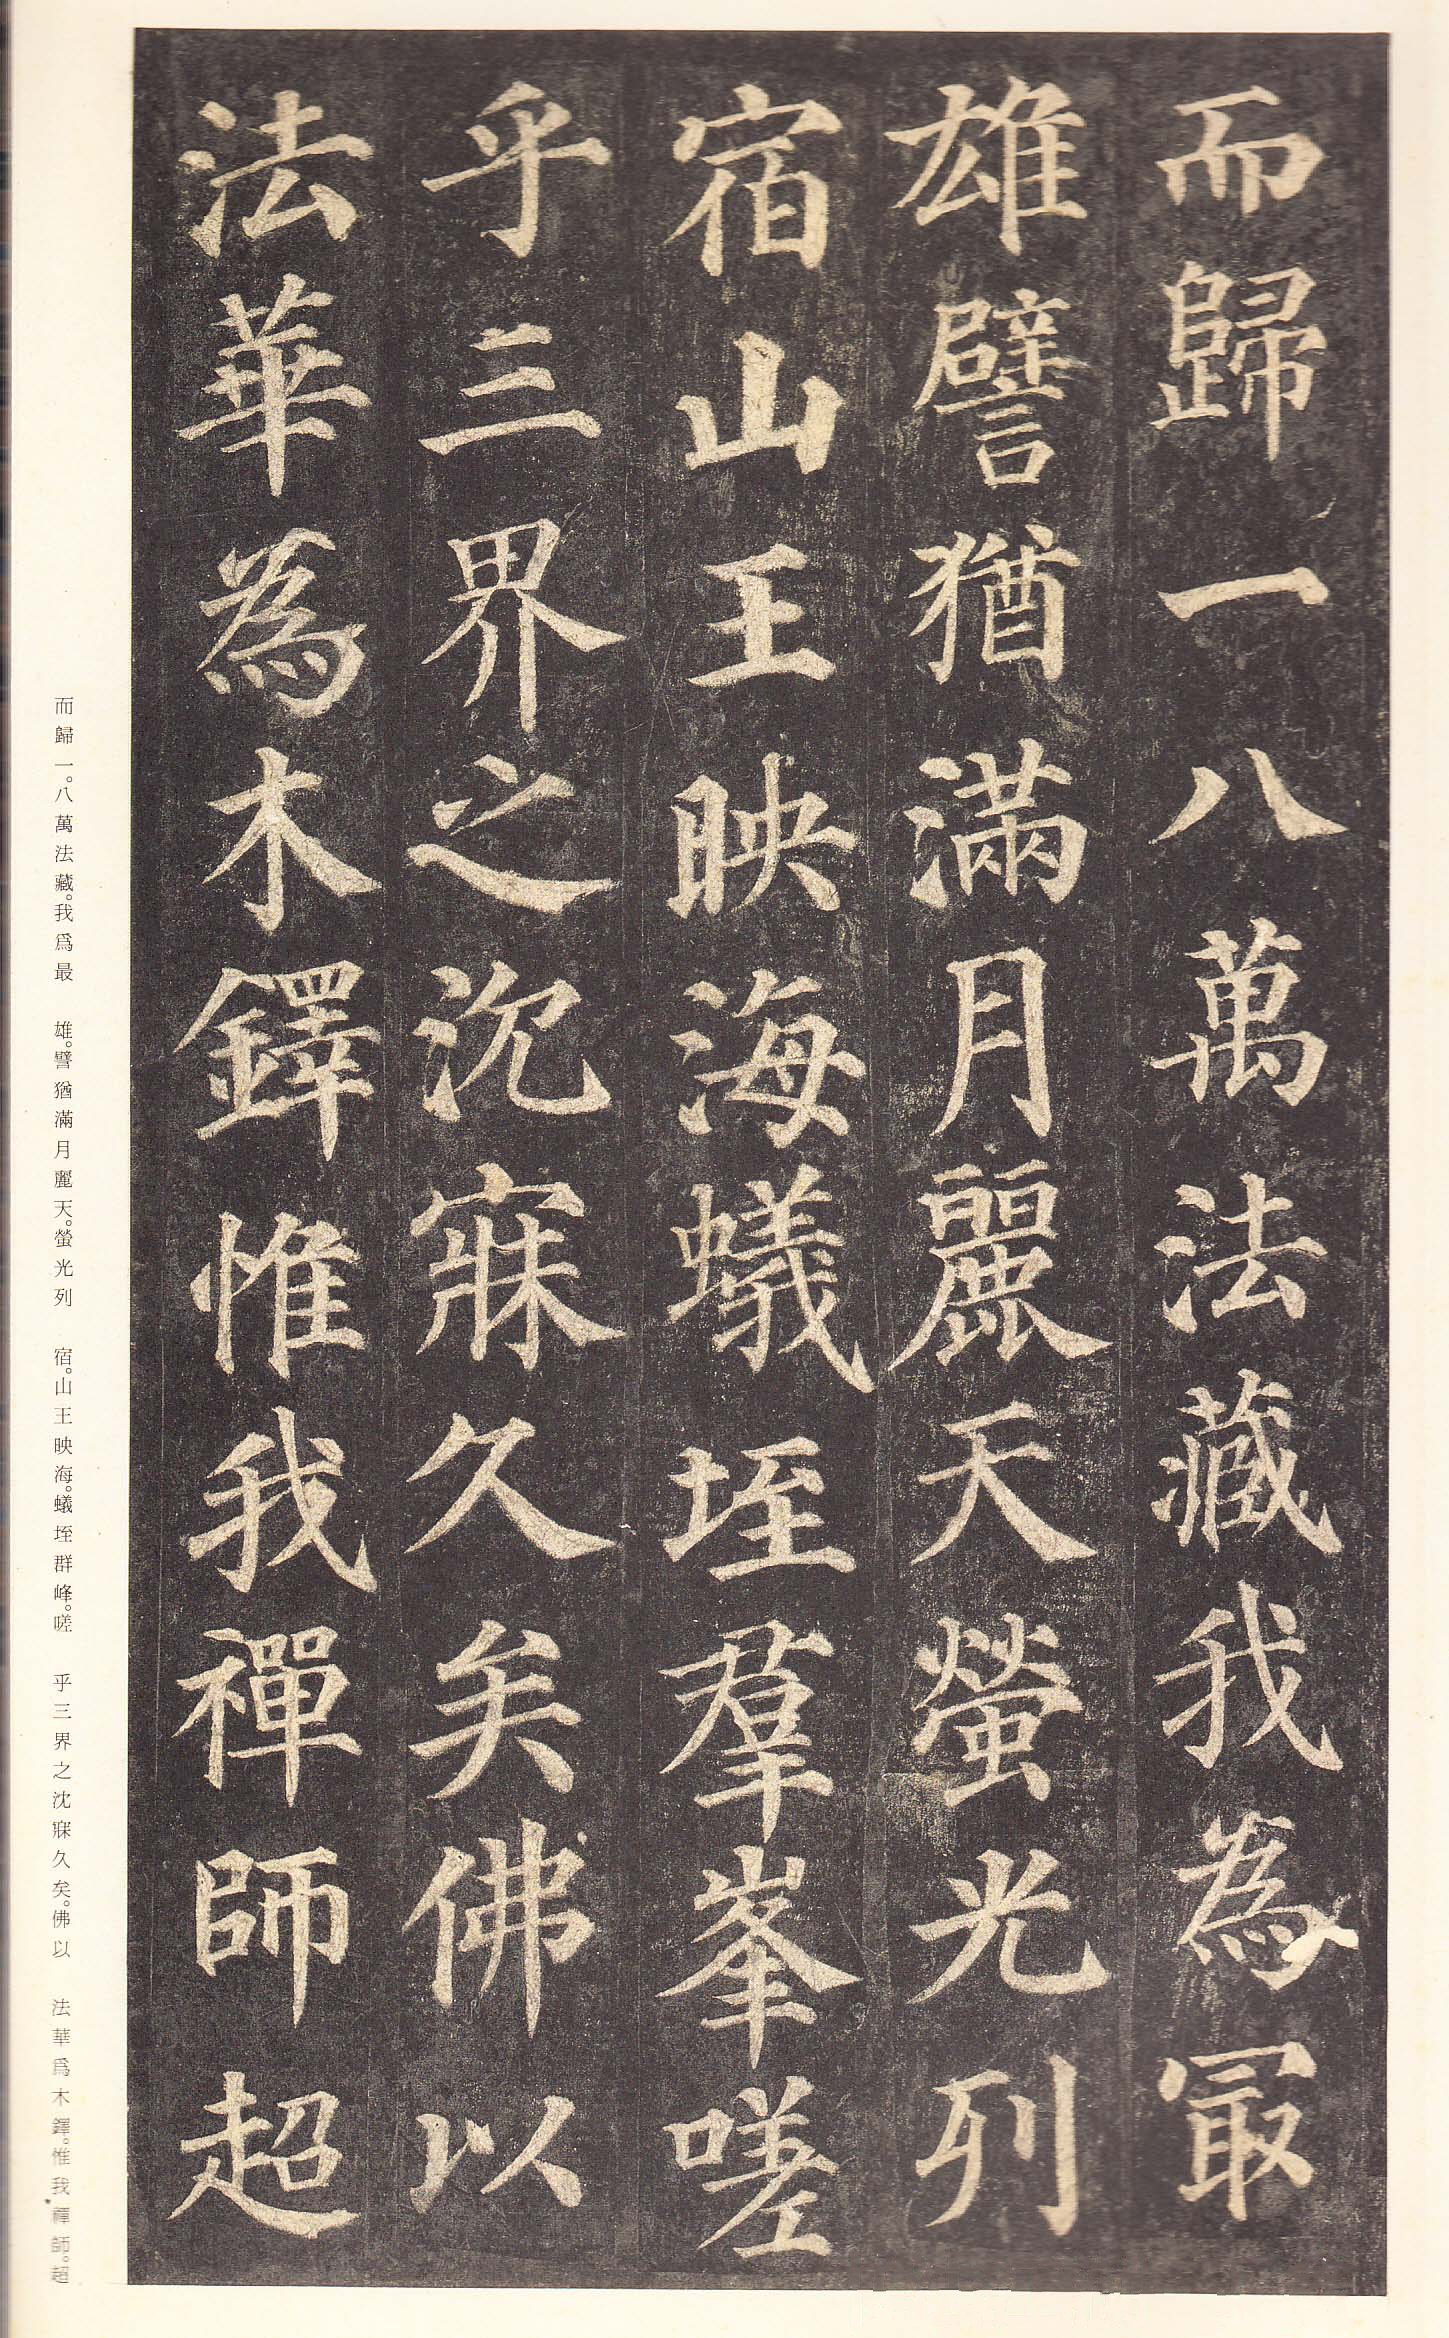 而歸一八萬法藏我為冣
雄譬猶滿月麗天螢光列
宿山王映海蟻垤羣峯嗟
乎三界之沈寐久矣佛以
法華為木鐸惟我禪師超
而歸一。八萬法藏。我爲最　雄。譬猶滿月麗天。螢光列　宿。山王映海。蟻垤群峰。嗟　乎三界之沈寐久矣。佛以　法華爲木鐸。惟我禪師。超